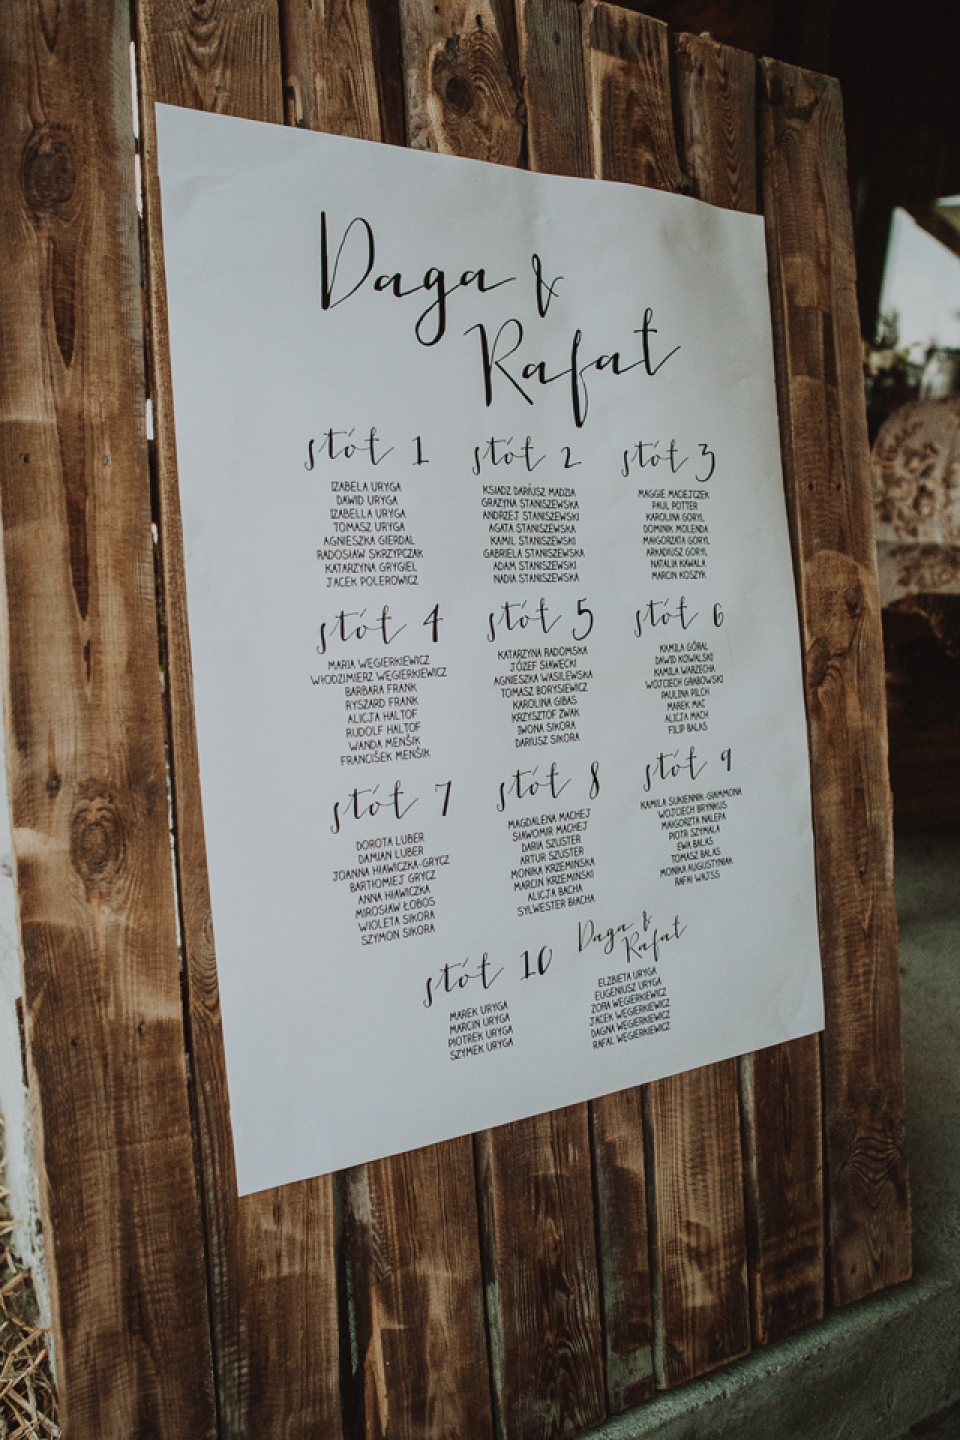 Daga &
Rafał
stół 1
IZABELA URYGA
DAWID URYGA
IZABELLA URYGA
TOMASZ URYGA
AGNIESZKA GIERDAL
RADOSŁAW SKRZYPCZAK
KATARZYNA GRYGIEL
JACEK POLEROWICZ
stół 2
KSIĄDZ DARIUSZ MADZIA
GRAŻYNA STANISZEWSKA
ANDRZEJ STANISZEWSKI
AGATA STANISZEWSKA
KAMIL STANISZEWSKI
GABRIELA STANISZEWSKA
ADAM STANISZEWSKI
NADIA STANISZEWSKA
stół 3
MAGGIE MACIEJCZEK
PAUL POTTER
KAROLINA GORYL
DOMINIK MOLENDA
MAŁGORZATA GORYL
ARKADIUSZ GORYL
NATALIA KAWALA
MARCIN KOSZYK
stół 4
MARIA WĘGIERKIEWICZ
WŁODZIMIERZ WĘGIERKIEWICZ
BARBARA FRANK
RYSZARD FRANK
ALICJA HALTOF
RUDOLF HALTOF
WANDA MENŠIK
FRANCIŠEK MENŠIK
stół 5
KATARZYNA RADOMSKA
JÓZEF SŁAWECKI
AGNIESZKA WASILEWSKA
TOMASZ BORYSIEWICZ
KAROLINA GIBAS
KRZYSZTOF ŻWAK
IWONA SIKORA
DARIUSZ SIKORA
stół 6
KAMILA GÓRAL
DAWID KOWALSKI
KAMILA WARZECHA
WOJCIECH GRABOWSKI
PAULINA PILCH
MAREK MAĆ
ALICJA MACH
FILIP BALAS
stół 7
DOROTA LUBER
DAMIAN LUBER
JOANNA HŁAWICZKA-GRYCZ
BARTŁOMIEJ GRYCZ
ANNA HŁAWICZKA
MIROSŁAW ŁOBOS
WIOLETA SIKORA
SZYMON SIKORA
stół 8
MAGDALENA MACHEJ
SŁAWOMIR MACHEJ
DARIA SZUSTER
ARTUR SZUSTER
MONIKA KRZEMIŃSKA
MARCIN KRZEMIŃSKI
ALICJA BACHA
SYLWESTER BIACHA
stół 9
KAMILA SUKIENNIK-GIAMMONA
WOJCIECH BRYNKUS
MAŁGORZTA NALEPA
PIOTR SZYMALA
EWA BALAS
TOMASZ BALAS
MONIKA AUGUSTYNIAK
RAFAŁ WAJSS
stół 10
MAREK URYGA
MARCIN URYGA
PIOTREK URYGA
SZYMEK URYGA
Daga &
Rafał
ELŻBIETA URYGA
EUGENIUSZ URYGA
ZOFIA WĘGIERKIEWICZ
JACEK WĘGIERKIEWICZ
DAGNA WĘGIERKIEWICZ
RAFAŁ WĘGIERKIEWICZ